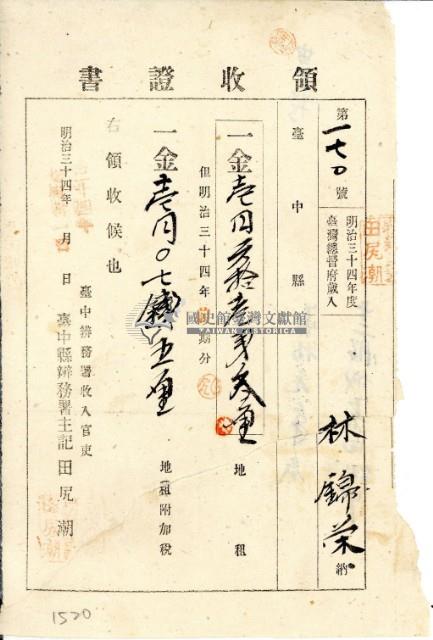 領收證書
第一七〇號
明治三十四年度
臺灣總督府歲入
林錦榮納
臺中縣
一金壱円
地租
但明治三十四年 期分
一金壱円〇七錢五厘
地租附加稅
右領收候也
明治三十四年 月 日
臺中辨務署收入官吏
臺中縣辨務署主記 田尻潮
田尻潮
國史館臺灣文獻館
TAIWAN HISTORICA
1520